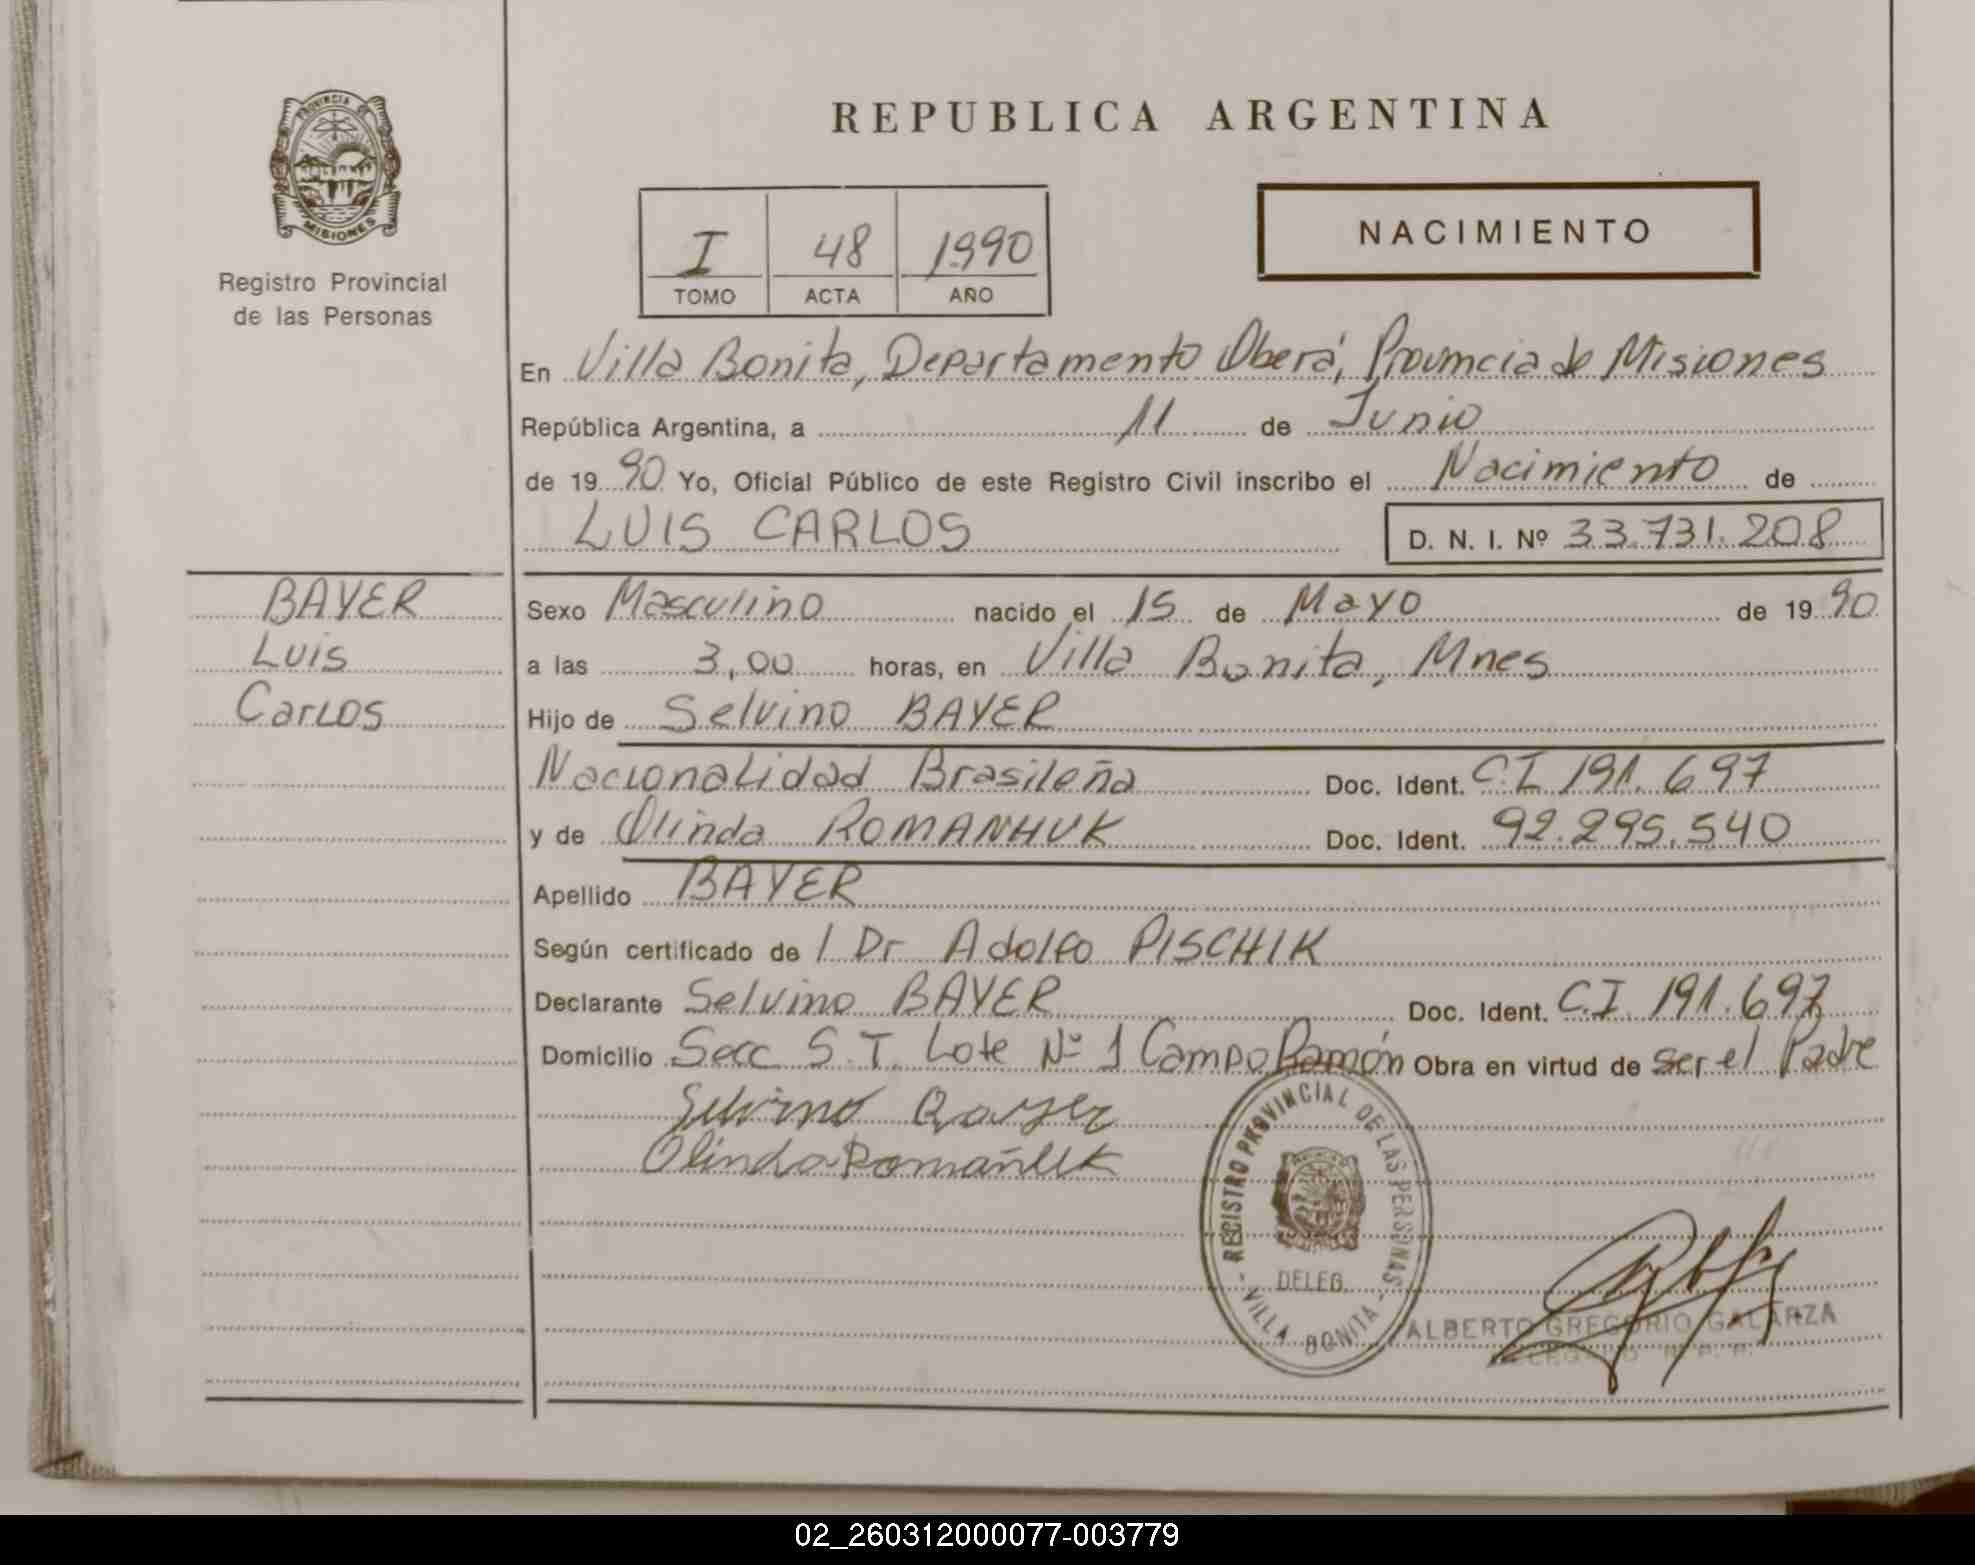 PROVINCIA DE
MISIONES
Registro Provincial
de las Personas
REPUBLICA ARGENTINA
I 48 1990
TOMO ACTA AÑO
NACIMIENTO
En Villa Bonita, Departamento Oberá, Provincia de Misiones
República Argentina, a 11 de Junio
de 1990 Yo, Oficial Público de este Registro Civil inscribo el Nacimiento de
LUIS CARLOS D. N. I. Nº 33.731.208
BAYER
Luis
Carlos
Sexo Masculino nacido el 15 de Mayo de 1990
a las 3,00 horas, en Villa Bonita, Mnes
Hijo de Selvino BAYER
Nacionalidad Brasileña Doc. Ident. C.I 191.697
y de Olinda ROMANHUK Doc. Ident. 92.295.540
Apellido BAYER
Según certificado de / Dr Adolfo PISCHIK
Declarante Selvino BAYER Doc. Ident. C.I. 191.697
Domicilio Secc S.T. Lote Nº 1 Campo Ramón Obra en virtud de ser el Padre
Selvino Bayer
Olinda Romañuk
REGISTRO PROVINCIAL DE LAS PERSONAS
DELEG.
- VILLA BONITA -
ALBERTO GREGORIO GALARZA
02_260312000077-003779